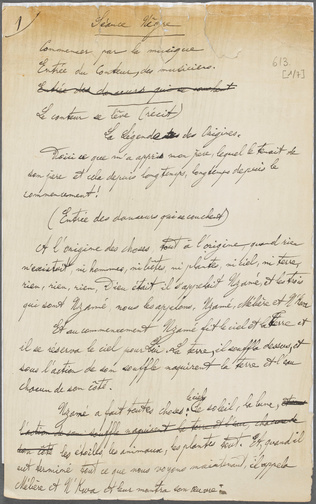 1
Séance Nègre
Commencer par la musique
Entrée du Conteur, des musiciens.
Entrée des danseurs qui se couchent
Le conteur se lève (récit)
La légende des Origines.
Voici ce que m'a appris mon père, lequel le tenait de
son père et cela depuis longtemps, longtemps depuis le
commencement.
(Entrée des danseurs qui se couchent)
A l'origine des choses tout à l'origine, quand rien
n'existait, ni hommes, ni bêtes, ni plantes, ni ciel, ni terre,
rien, rien, rien, Dieu était et s'appelait Nzamé, et les trois
qui sont Nzamé nous les appelons, Nzamé, Mébère et N'Kwa
Et au commencement Nzamé fit le ciel et la terre et
il se réserva le ciel pour lui. La terre, il souffla dessus, et
sous l'action de son souffle naquirent la terre et l'eau
chacun de son côté.
Nzamé a fait toutes choses: le ciel, le soleil, la lune,
l'action de son souffle naquirent la terre et l'eau, chacun de
son côté les étoiles, les animaux, les plantes tout. Et quand il
eut terminé tout ce que nous voyons maintenant, il appela
Mébère et N'Kwa et leur montra son œuvre
613
[1/7]